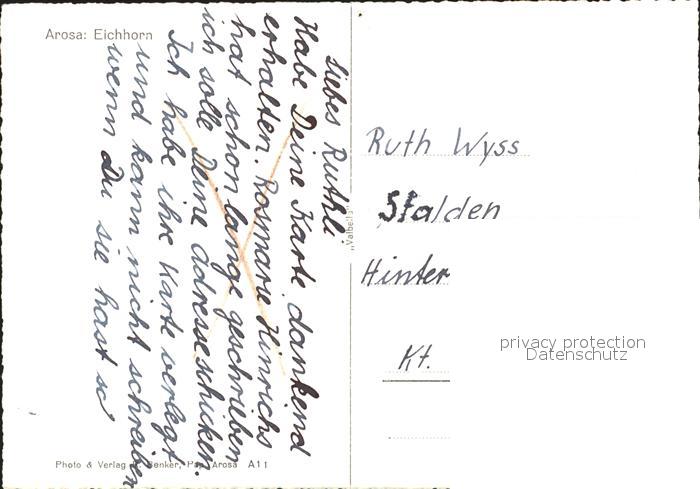 Arosa: Eichhorn
Liebes Ruthli
Habe Deine Karte dankend
erhalten. Rosmarie Hinrichs
hat schon lange geschrieben
ich solle Deine Adresse schicken.
Ich habe ihre Karte verlegt
und kann nicht schreiben
wenn Du sie hast so
Photo & Verlag Benker, Pap. Arosa A11
"Valbella"
Ruth Wyss
Stalden
Hinter
Kt.
privacy protection
Datenschutz